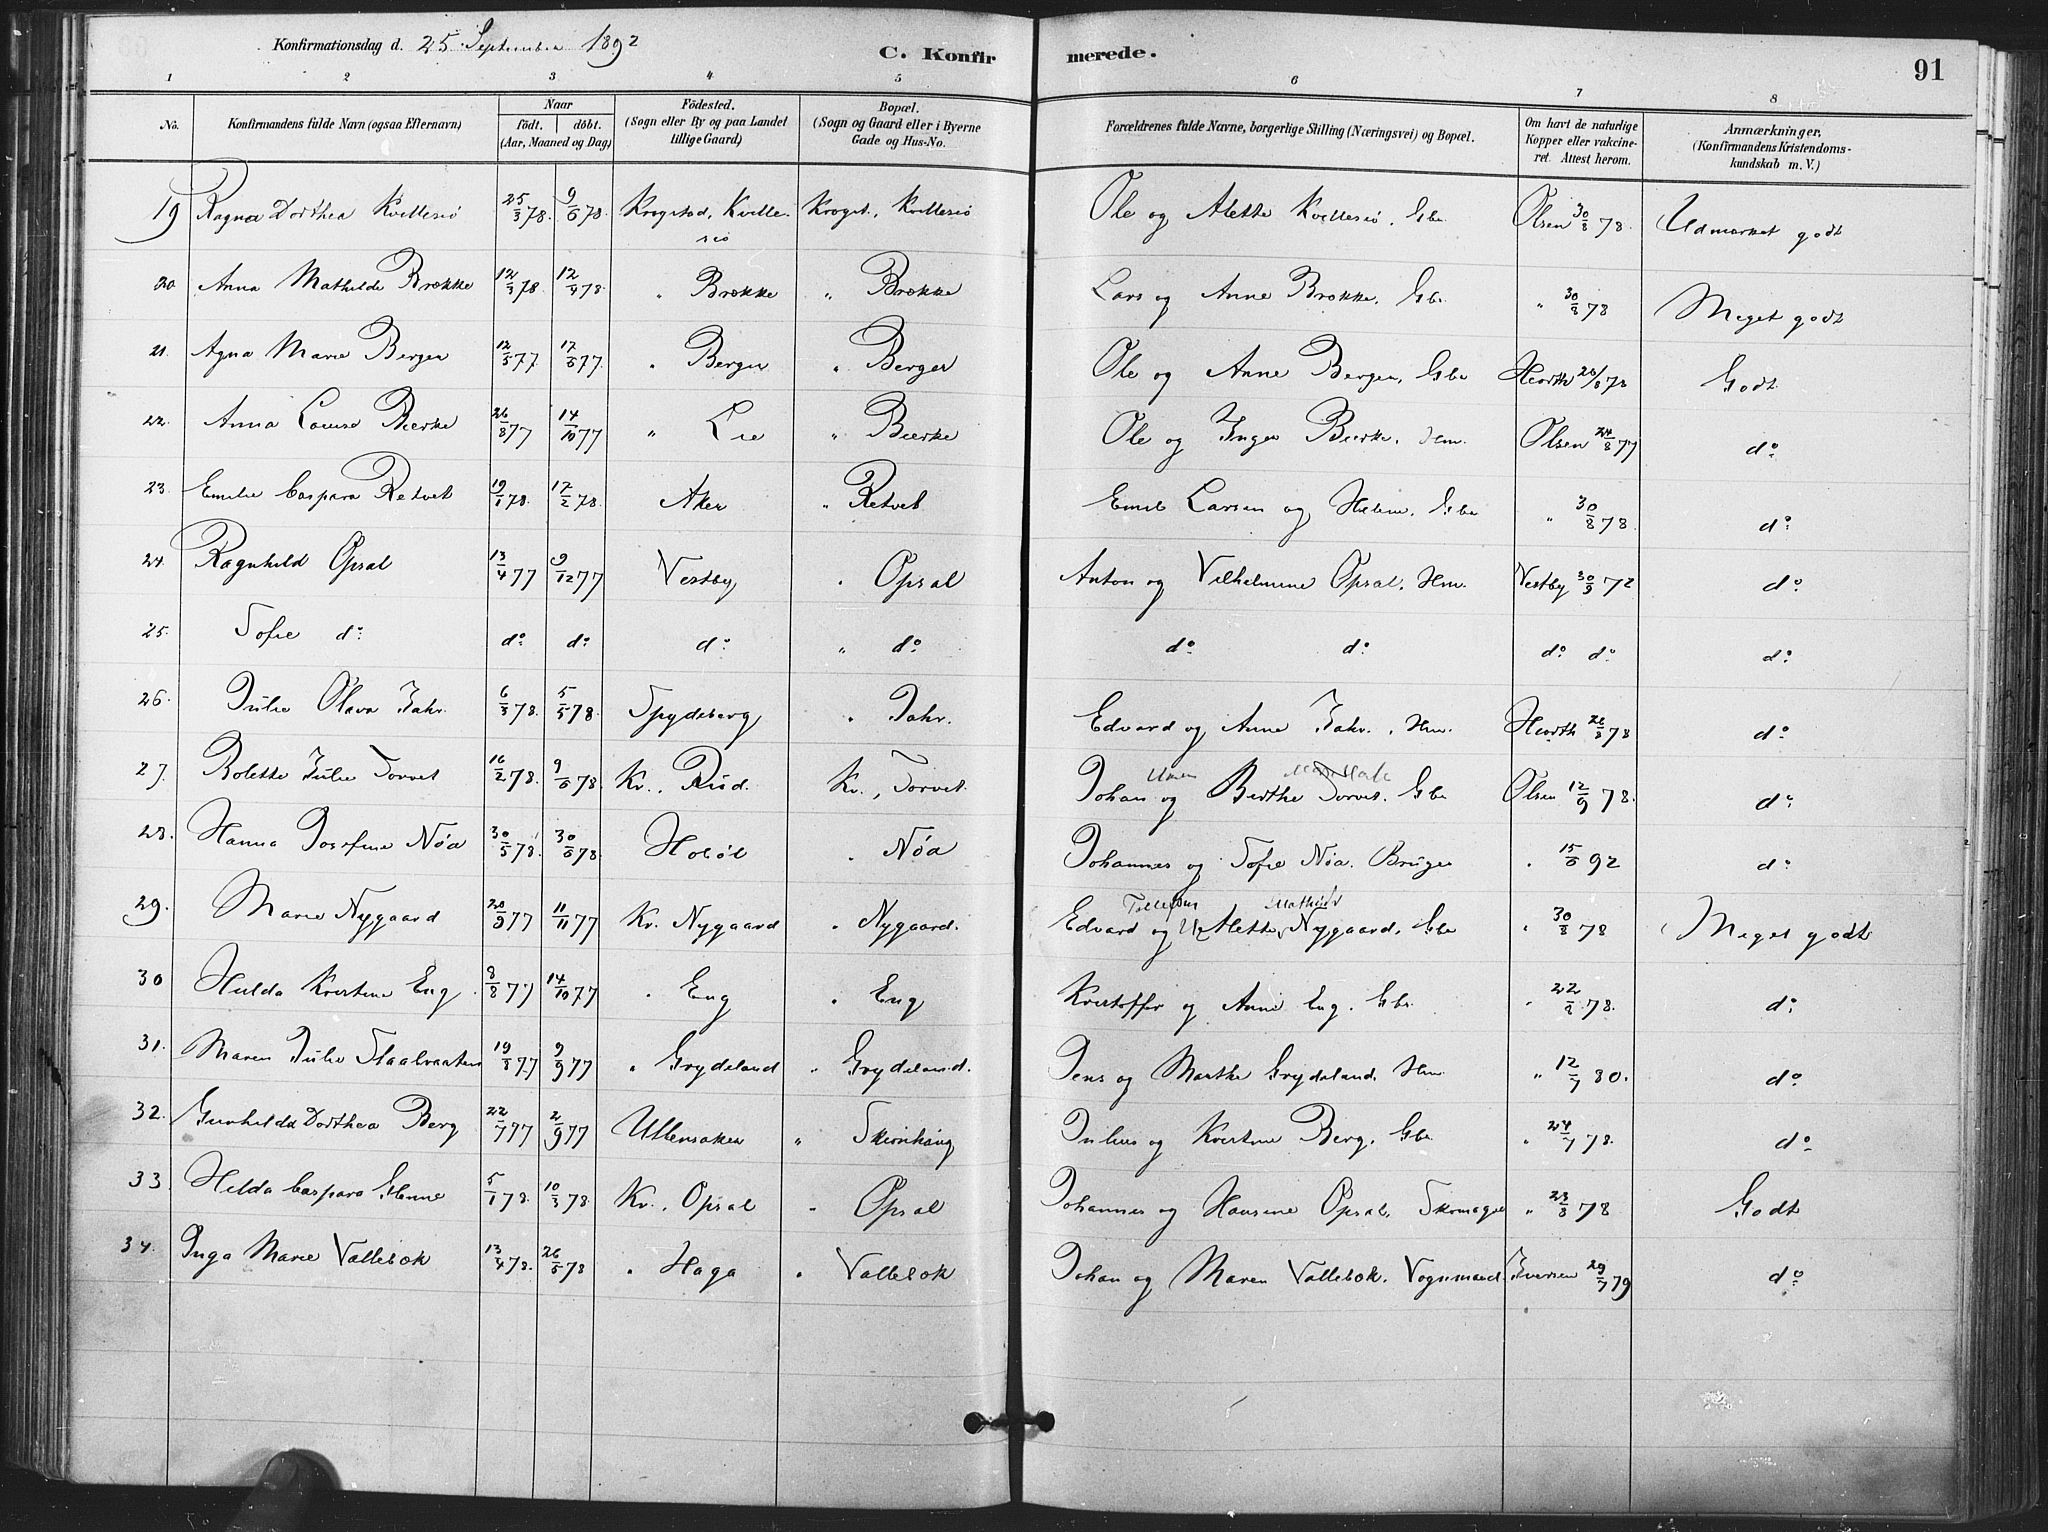 Konfirmationsdag d. 25 September 1892
C. Konfirmerede.
91
1 2 3 4 5 6 7 8
No. Konfirmandens fulde Navn (ogsaa Efternavn) Naar födt. döbt. (Aar, Maaned og Dag) Födested. (Sogn eller By og paa Landet tillige Gaard) Bopæl. (Sogn og Gaard eller i Byerne Gade og Hus-No. Forældrenes fulde Navne, borgerlige Stilling (Næringsvei) og Bopæl. Om havt de naturlige Kopper eller vakcineret. Attest herom. Anmærkninger. (Konfirmandens Kristendomskundskab m. V.)
19 Ragna Dorthea Kvillesiö 25/3 78. 9/6 78. Krogstad, Kvillesiö Krogst., Kvillesiö Ole og Alette Kvillesiö, Gbr Olsen 30/8 78. Udmærket godt
20. Anna Mathilde Brække 12/3 78. 12/4 78. " Brække " Brække Lars og Anne Brække, Gbr " 30/8 78 Meget godt
21. Agna Marie Berger 12/5 77. 17/6 77. " Berger " Berger Ole og Anne Berger, Gbr Hiorth 26/8 78 Godt
22. Anna Lovise Bierke 26/8 77 14/10 77 " Lie " Bierke Ole og Inger Bierke, Hm. Olsen 24/8 77 do
23. Emilie Caspara Retvet 19/1 78. 17/2 78. Aker " Retvet Emil Larsen og Helene, Gbr " 30/8 78. do
24. Ragnhild Opsal 13/4 77 9/12 77 Vestby " Opsal Anton og Vilhelmine Opsal, Hm. Vestby 30/9 72 do
25. Sofie do do do do " do do do do do do
26. Julie Olava Jahr 6/3 78. 5/5 78. Spydeberg " Jahr. Edvard og Anne Jahr., Hm. Hiorth 26/8 78 do
27. Bolette Julie Torvet 16/2 78. 9/6 78. Kr., Riud. Kr., Torvet. Johan og Berthe Torvet, Gbr Olsen 12/9 78. do
28. Hanna Josefine Nöa 30/5 78. 30/6 78. Hoböl " Nöa Johannes og Sofie Nöa. Bruger " 15/6 92 do
29. Marie Nygaard 20/9 77 11/11 77 Kr. Nygaard " Nygaard. Edvard Tollefsen og Alette Mathilde Nygaard, Gbr " 30/8 78 Meget godt
30 Hulda Kristine Eng 8/8 77 14/10 77 " Eng " Eng Kristoffer og Anne Eng. Gbr. " 22/2 78. do
31. Maren Julie Skaalvaaten 19/8 77 9/9 77 " Grydeland " Grydeland. Jens og Marthe Grydeland, Hm " 12/7 80. do
32. Gunhilda Dorthea Berg 22/7 77 2/9 77 Ullensaker " Skionhaug Julius og Kristine Berg. Gbr " 24/7 78. do
33. Hilda Caspara Glenne 5/1 78. 10/3 78 Kr., Opsal " Opsal Johannes og Hansine Opsal, Skomager " 23/8 78 Godt
34. Inga Marie Vallebok 13/4 78. 26/5 78 " Haga " Vallebok Johan og Maren Vallebok. Vognmand Iversen 29/7 79 do